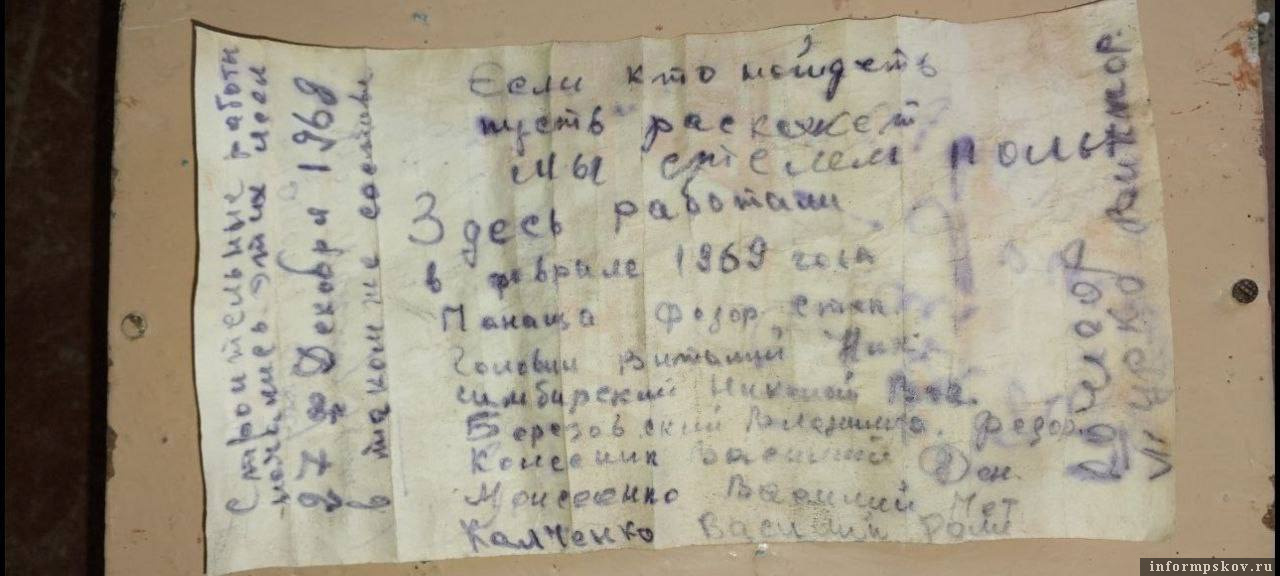 Если кто найдеть
пусть раскажет
мы стелем полы
Здесь работали
в феврале 1969 года
Панаща Федор Степ.
Головин Виталий Ник
Симбирский Николай
Березовский Владимир. Федор.
Колесник Василий Сен.
Моисеенко Василий
Калченко Василий Роман
Строительные работы
начались этих
27 Декабря 1968
в таком же составе
Виктор.
informpskov.ru